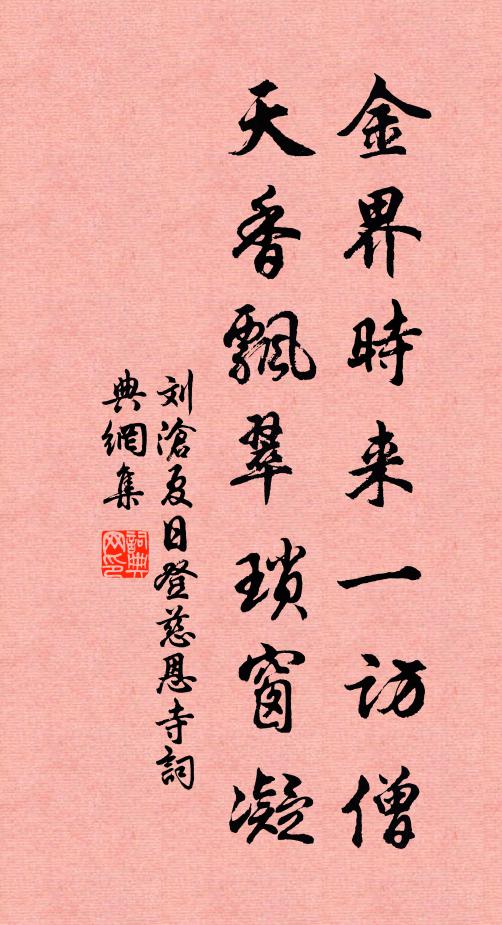 金界時来一访僧
天香飄翠瑣窗凝
刘滄夏日登慈恩寺詞
典網集
詞典
网印